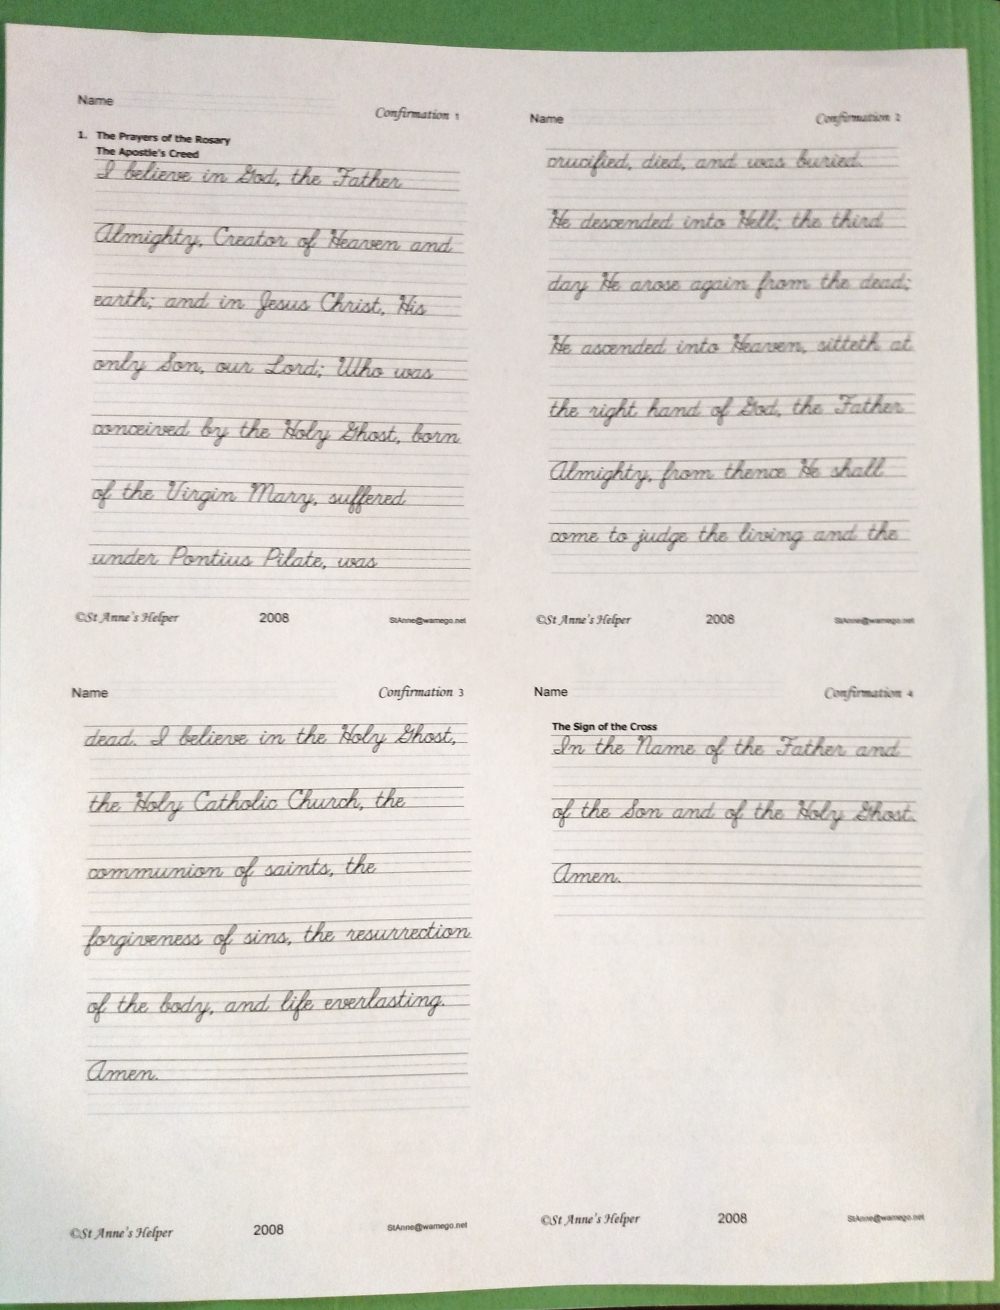 Name
Confirmation 1
1. The Prayers of the Rosary
The Apostle's Creed
I believe in God, the Father
Almighty, Creator of Heaven and
earth; and in Jesus Christ, His
only Son, our Lord; Who was
conceived by the Holy Ghost, born
of the Virgin Mary, suffered
under Pontius Pilate, was
©St Anne's Helper 2008 StAnne@wamego.net
Name
Confirmation 2
crucified, died, and was buried.
He descended into Hell; the third
day He arose again from the dead;
He ascended into Heaven, sitteth at
the right hand of God, the Father
Almighty, from thence He shall
come to judge the living and the
©St Anne's Helper 2008 StAnne@wamego.net
Name
Confirmation 3
dead. I believe in the Holy Ghost,
the Holy Catholic Church, the
communion of saints, the
forgiveness of sins, the resurrection
of the body, and life everlasting.
Amen.
©St Anne's Helper 2008 StAnne@wamego.net
Name
Confirmation 4
The Sign of the Cross
In the Name of the Father and
of the Son and of the Holy Ghost.
Amen.
©St Anne's Helper 2008 StAnne@wamego.net